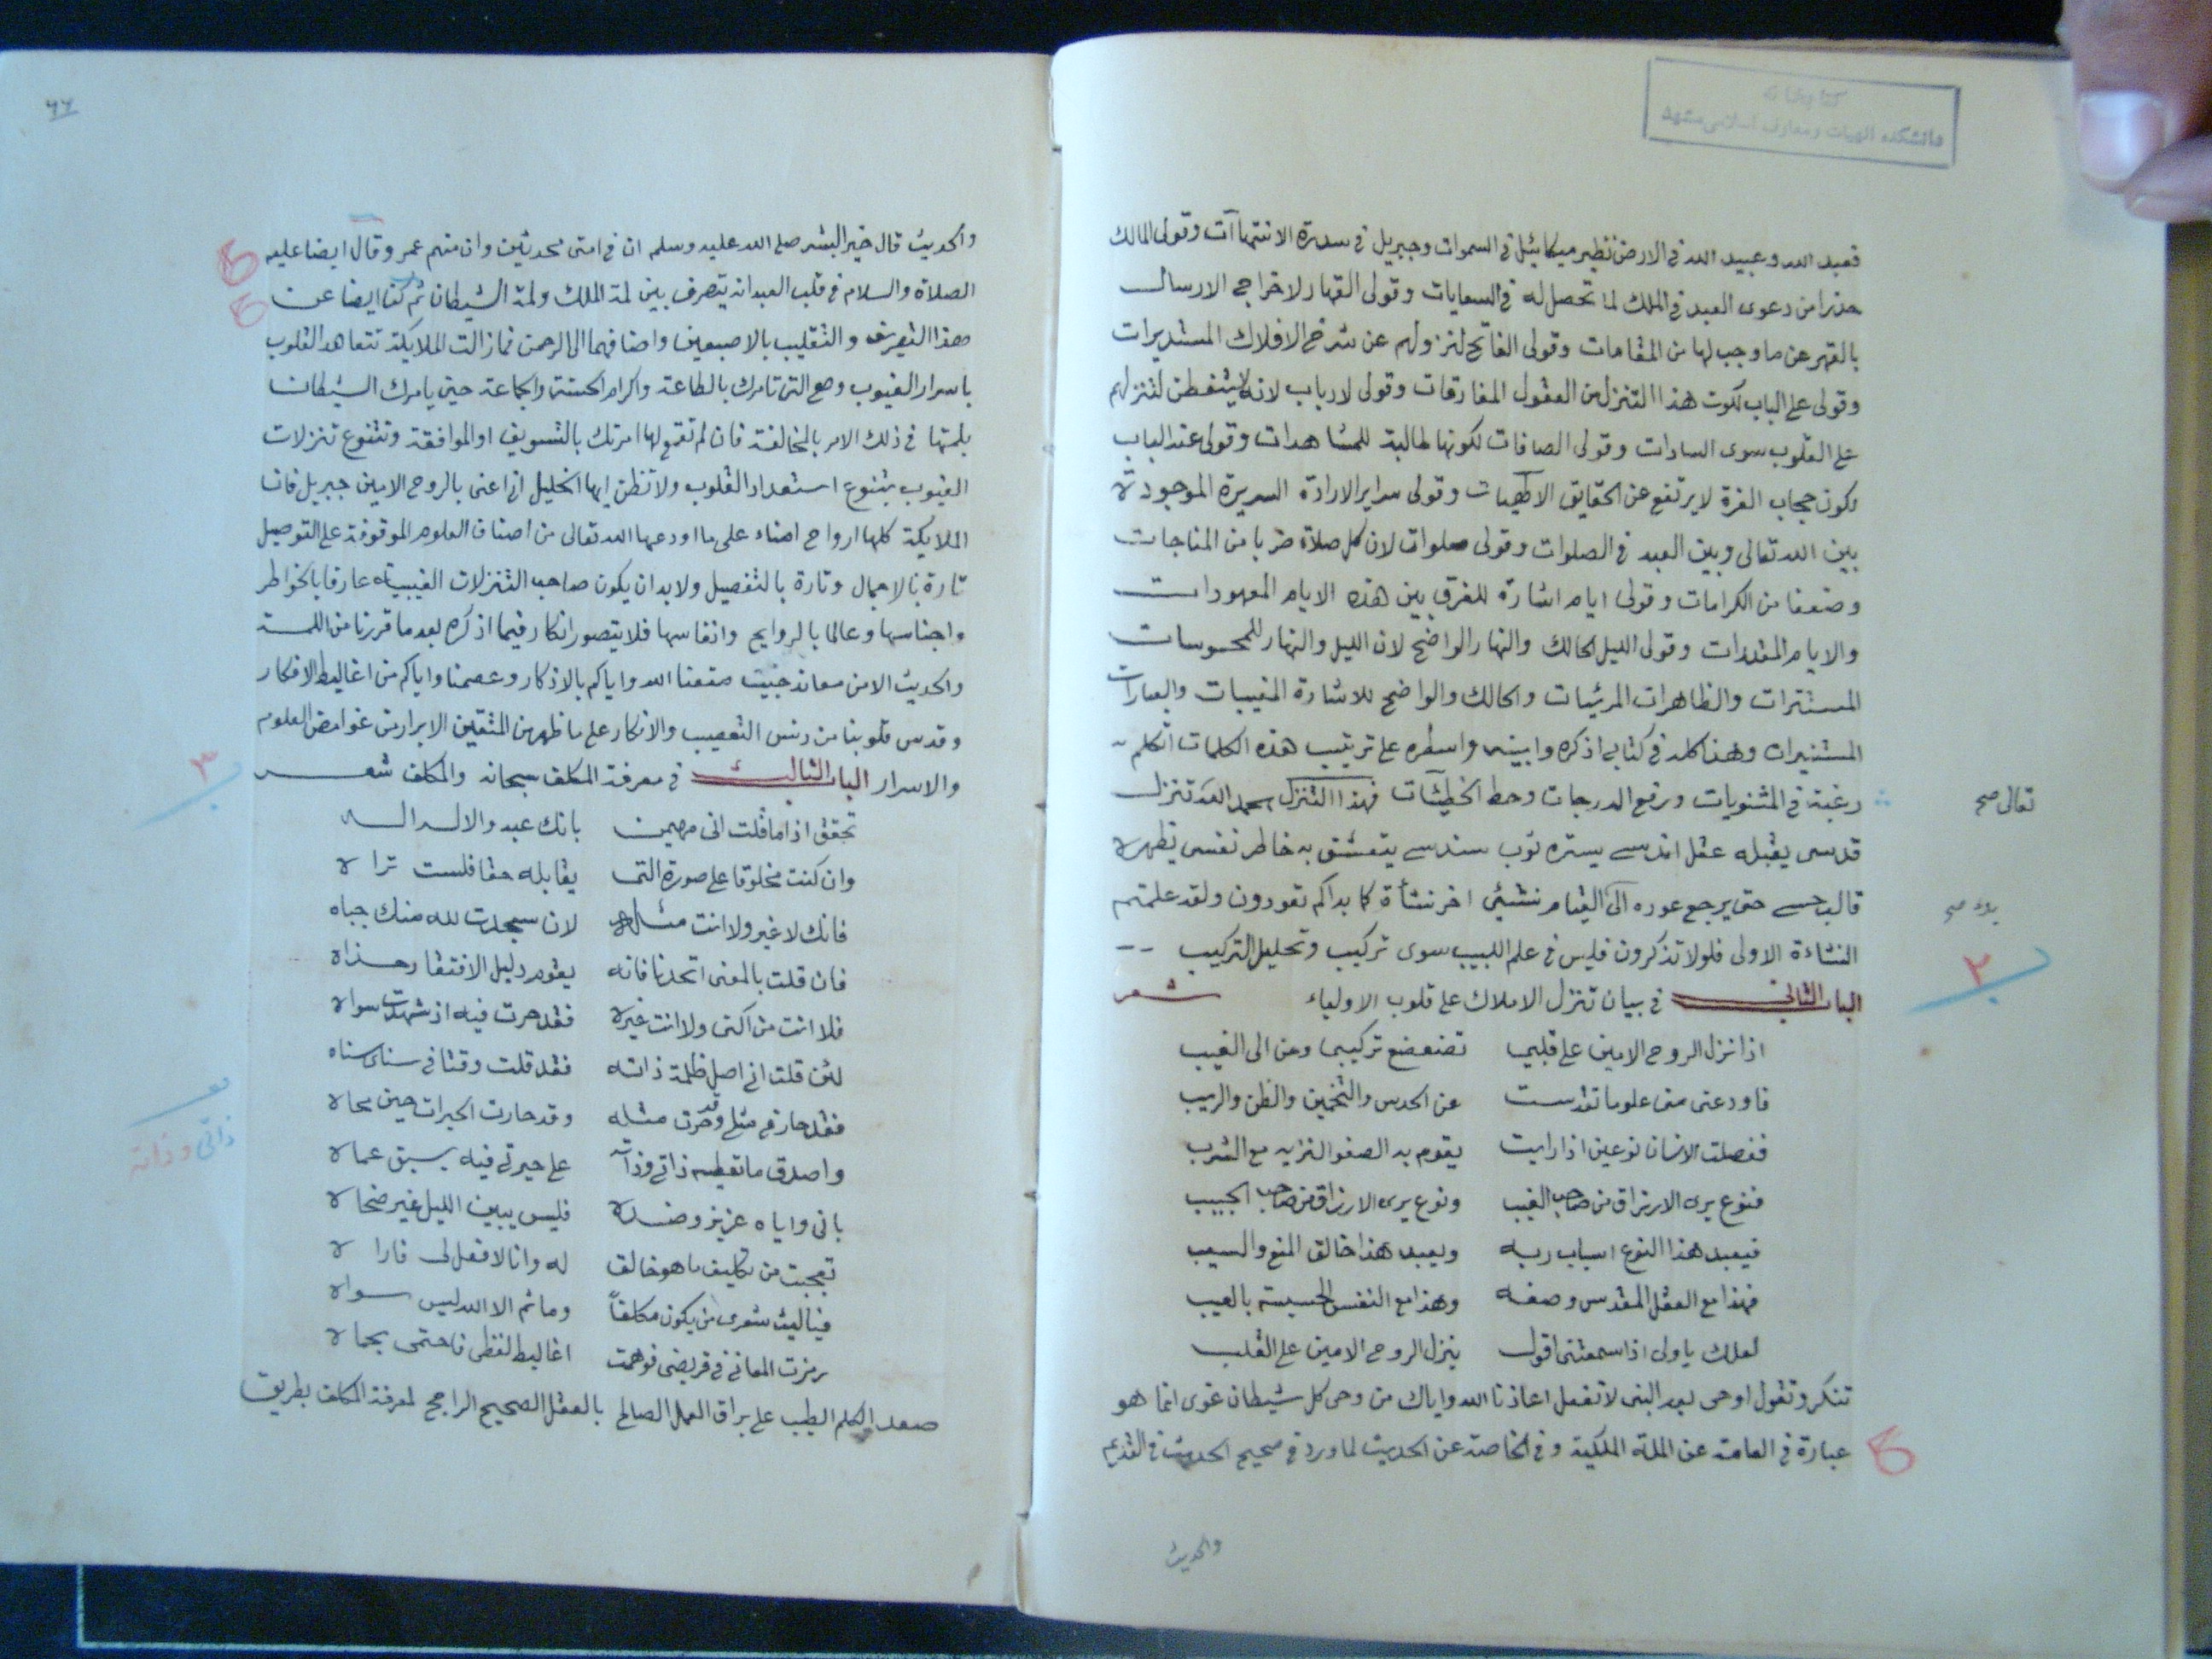 كتابخانه
دانشكده الهيات ومعارف اسلامى مشهد
فعبد الله وعبيد الله فى الارض نظير ميكائيل فى السموات وجبريل فى سدرة الانتهاآت وقولى المالك
حذرا من دعوى العبد فى الملك لما تحصل له فى السعايات وقولى القهار لاخراجى الارسال
بالقهر عن ما وجب لها من المقامات وقولى الفاتح لنزولهم عن شرخ الافلاك المستديرات
وقولى على الباب لكوت هذا التنزل من العقول المفارقات وقولى لارباب لانه لا يتفطن لتنزلهم
على القلوب سوى السادات وقولى الصافات لكونها طالبة للمشاهدات وقولى عند الباب
لكون حجاب العزة لا يرتفع عن الحقايق الالهيات وقولى سراير الارادة السريرة الموجودة
بين الله تعالى وبين العبد فى الصلوات وقولى صلوات لان كل صلاة ضربا من المناجات
وضعفا من الكرامات وقولى ايام اشارة للفرق بين هذه الايام المعهودات
والايام المقدرات وقولى الليل الحالك والنهار الواضح لان الليل والنهار للمحسوسات
المستترات والظاهرات المرئيات والحالك والواضح للاشارة المغيبات والعبارات
المستنيرات وهذا كله فى كتابى اذكره وابينه واسطره على ترتيب هذه الكلمات اتكلم
رغبة فى المثنويات ورفع الدرجات وحط الخطيئآت فهذا التنزل الله تنزل
تعالى صح
قدسى يقبله عقل اندسى يستره ثوب سندسى يتعشق به خاطر نفسى يظهره
قالب حسى حتى يرجع عوده الى القيام ننشئى اخر نشأة كما بداكم تعودون ولقد علمتم
بدؤه صح
النشاءة الاولى فلولا تذكرون فليس فى علم اللبيب سوى تركيب وتحليل التركيب
٢
الباب الثانى فى بيان تنزل الاملاك على قلوب الاولياء شعر
اذا نزل الروح الامين على قلبى تضعضع تركيبى وحن الى الغيب
فاودعنى منى علوما تقدست عن الحدس والتخمين والظن والريب
ففصلت الانسان نوعين اذا رايت يقوم به الصفو النزيه مع الشرب
فنوع يرى الارزاق من صاحب الغيب ونوع يرى الارزاق من صاحب الجيب
فيعبد هذا النوع اسباب ربه ويعبد هذا خالق المنع والسيب
فهذا مع العقل المقدس وصفه وهذا مع النفس الخسيسة بالعيب
لعلك يا ولى اذا سمعتنى اقول ينزل الروح الامين على القلب
تنكر وتقول اوحى بعد النبى لا تفعل اعاذنا الله واياك من وحى كل شيطان غوى انما هو
عبارة فى العامة عن الملة الملكية وفى الخاصة عن الحديث لما ورد فى صحيح الحديث فى القديم
والحديث
٦٦
والحديث قال خير البشر صلى الله عليه وسلم ان فى امتى محدثين وان منهم عمر وقال ايضا عليه
الصلاة والسلام فى قلب العبد انه يتصرف بين لمة الملك ولمة الشيطان ثم كنا ايضا عن
هذا التصريف والتقليب بالاصبعين واضافهما الى الرحمن فما زالت الملايكة تتعاهد القلوب
باسرار الغيوب وهى التى تامرك بالطاعة واكرام الحسنة والجماعة حين يامرك الشيطان
بلمتها فى ذلك الامر بالمخالفة فان لم تقع لها امرتك بالتسويف او الموافقة وتتنوع تنزلات
الغيوب بتنوع استعداد القلوب ولا تظن ايها الخليل انى اعنى بالروح الامين جبريل فان
الملايكة كلها ارواح امناء على ما اودعها الله تعالى من اصناف العلوم الموقوفة على التوصيل
تارة بالاجمال وتارة بالتفصيل ولابد ان يكون صاحب التنزلات الغيبية عارفا بالخواطر
واجناسها وعالما بالروايح وانفاسها فلا يتصور انكار فيما اذكره بعد ما قررنا من اللمة
والحديث الا من معاند خبيث متعنا الله واياكم بالاذكار وعصمنا واياكم من اغاليط الافكار
وقدس قلوبنا من دنس التعصيب والانكار على ما ظهر من المتقين الابرار من غوامض العلوم
٣
والاسرار الباب الثالث فى معرفة المكلف سبحانه والمكلف شعر
تحقق اذا ما قلت انى مهيمن بانك عبد والاله اله
وان كنت مخلوقا على صورة التى يقابله حقا فلست تراه
فانك لا غير ولا انت مثله لان سجدت لله منك جباه
فان قلت بالمعنى اتحدنا فانه يقوم دليل الافتقار حذاه
فلا انت من اكنى ولا انت غيره فقد حرت فيه اذ شهدت سواه
لئن قلت انى اصل ظلمة ذاته فقد قلت وقتا فى سناى سناه
فقد حار فى مثلى وقد حرت مثله وقد حارت الحيرات حين محاه
واصدق ما تعطيه ذاتى وذاته على حيرتى فيه يسبق عماه
ذاتى وذاته
بانى واياه عزيز وضده فليس يبين الليل غير ضحاه
تعجبت من تكليف ما هو خالق له وانا لا فعل لى فاراه
فيا ليت شعرى من يكون مكلفاً وما ثم الا الله ليس سواه
رمزت المعانى فى قريضى فوهمت اغاليط لفظى فاحتمى بحماه
صعد الكلم الطيب على براق العمل الصالح بالعقل الصحيح الراجح لمعرفة المكلف بطريق